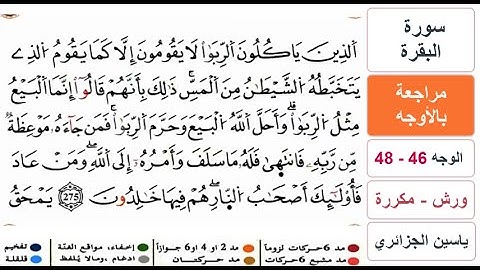 سورة
البقرة
مراجعة
بالأوجه
الوجه 46 - 48
ورش - مكررة
ياسين الجزائري
اَلذِينَ يَاكُلُونَ اَلرِّبَوٰاْ لَا يَقُومُونَ إِلَّا كَمَا يَقُومُ اُلذِے
يَتَخَبَّطُهُ اُلشَّيْطَٰنُ مِنَ اَلْمَسِّ ذَٰلِكَ بِأَنَّهُمْ قَالُوٓاْ إِنَّمَا اَلْبَيْعُ
مِثْلُ اُلرِّبَوٰاْ وَأَحَلَّ اَللَّهُ اُلْبَيْعَ وَحَرَّمَ اَلرِّبَوٰاْ فَمَن جَآءَهُۥ مَوْعِظَةٌ
مِّن رَّبِّهِۦ فَانتَهَىٰ فَلَهُۥ مَا سَلَفَ وَأَمْرُهُۥٓ إِلَى اَللَّهِ وَمَنْ عَادَ
فَأُوْلَٰٓئِكَ أَصْحَٰبُ اُلنَّارِ هُمْ فِيهَا خَٰلِدُونَ 275 يَمْحَقُ
مد 6 حركات لزوماً مد 2 أو 4 أو 6 جوازاً إخفاء، مواقع الغنّة تفخيم
مد مشبع 6 حركات مد حركتان ادغام، ومالا يُلفظ قلقلة